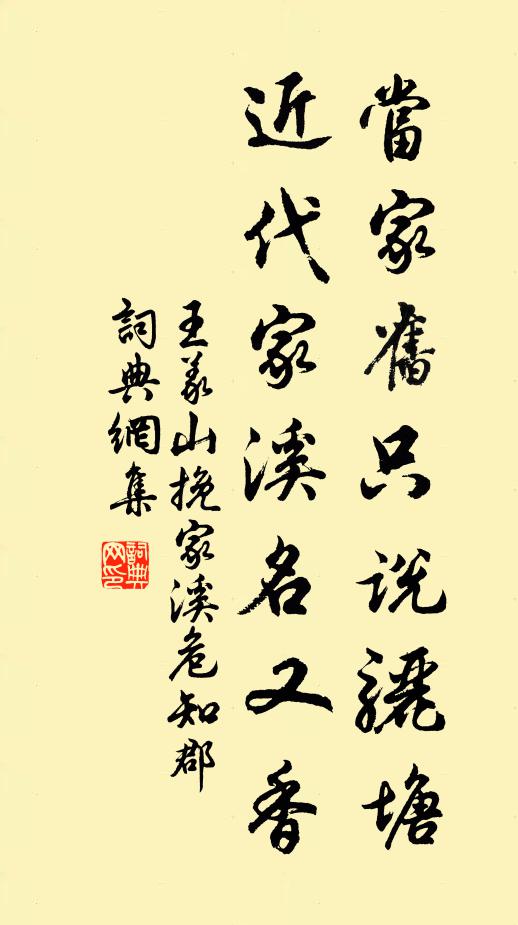 當家舊只說驪塘
近代家溪名又香
王義山挽家溪危知郡
詞典網集
詞典网印